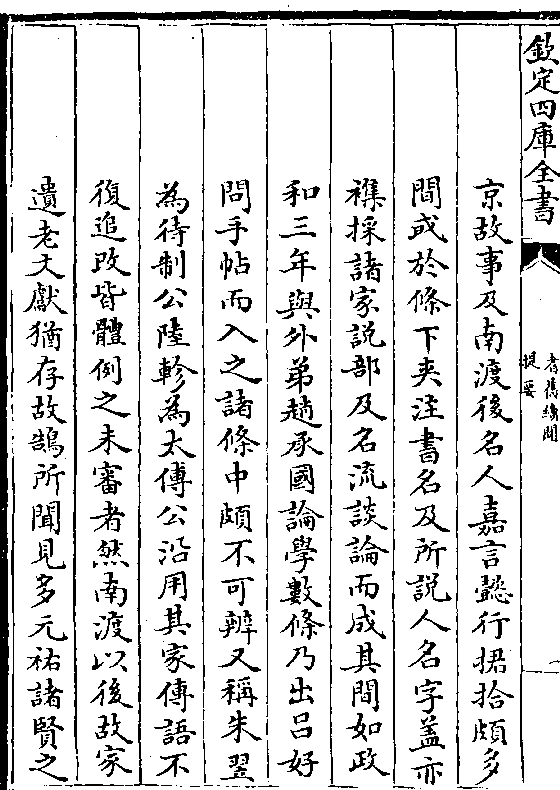 欽定四庫全書
耆舊續聞
提要
京故事及南渡後名人嘉言懿行捃拾頗多
間或於條下夾注書名及所説人名字葢亦
襍採諸家説部及名流談論而成其間如政
和三年與外弟趙承國論學數條乃出吕好
問手帖而入之諸條中頗不可辨又稱朱翌
為待制公陸軫為太傅公沿用其家傳語不
復追改皆體例之未審者然南渡以後故家
遺老文獻猶存故鵠所聞見多元祐諸賢之